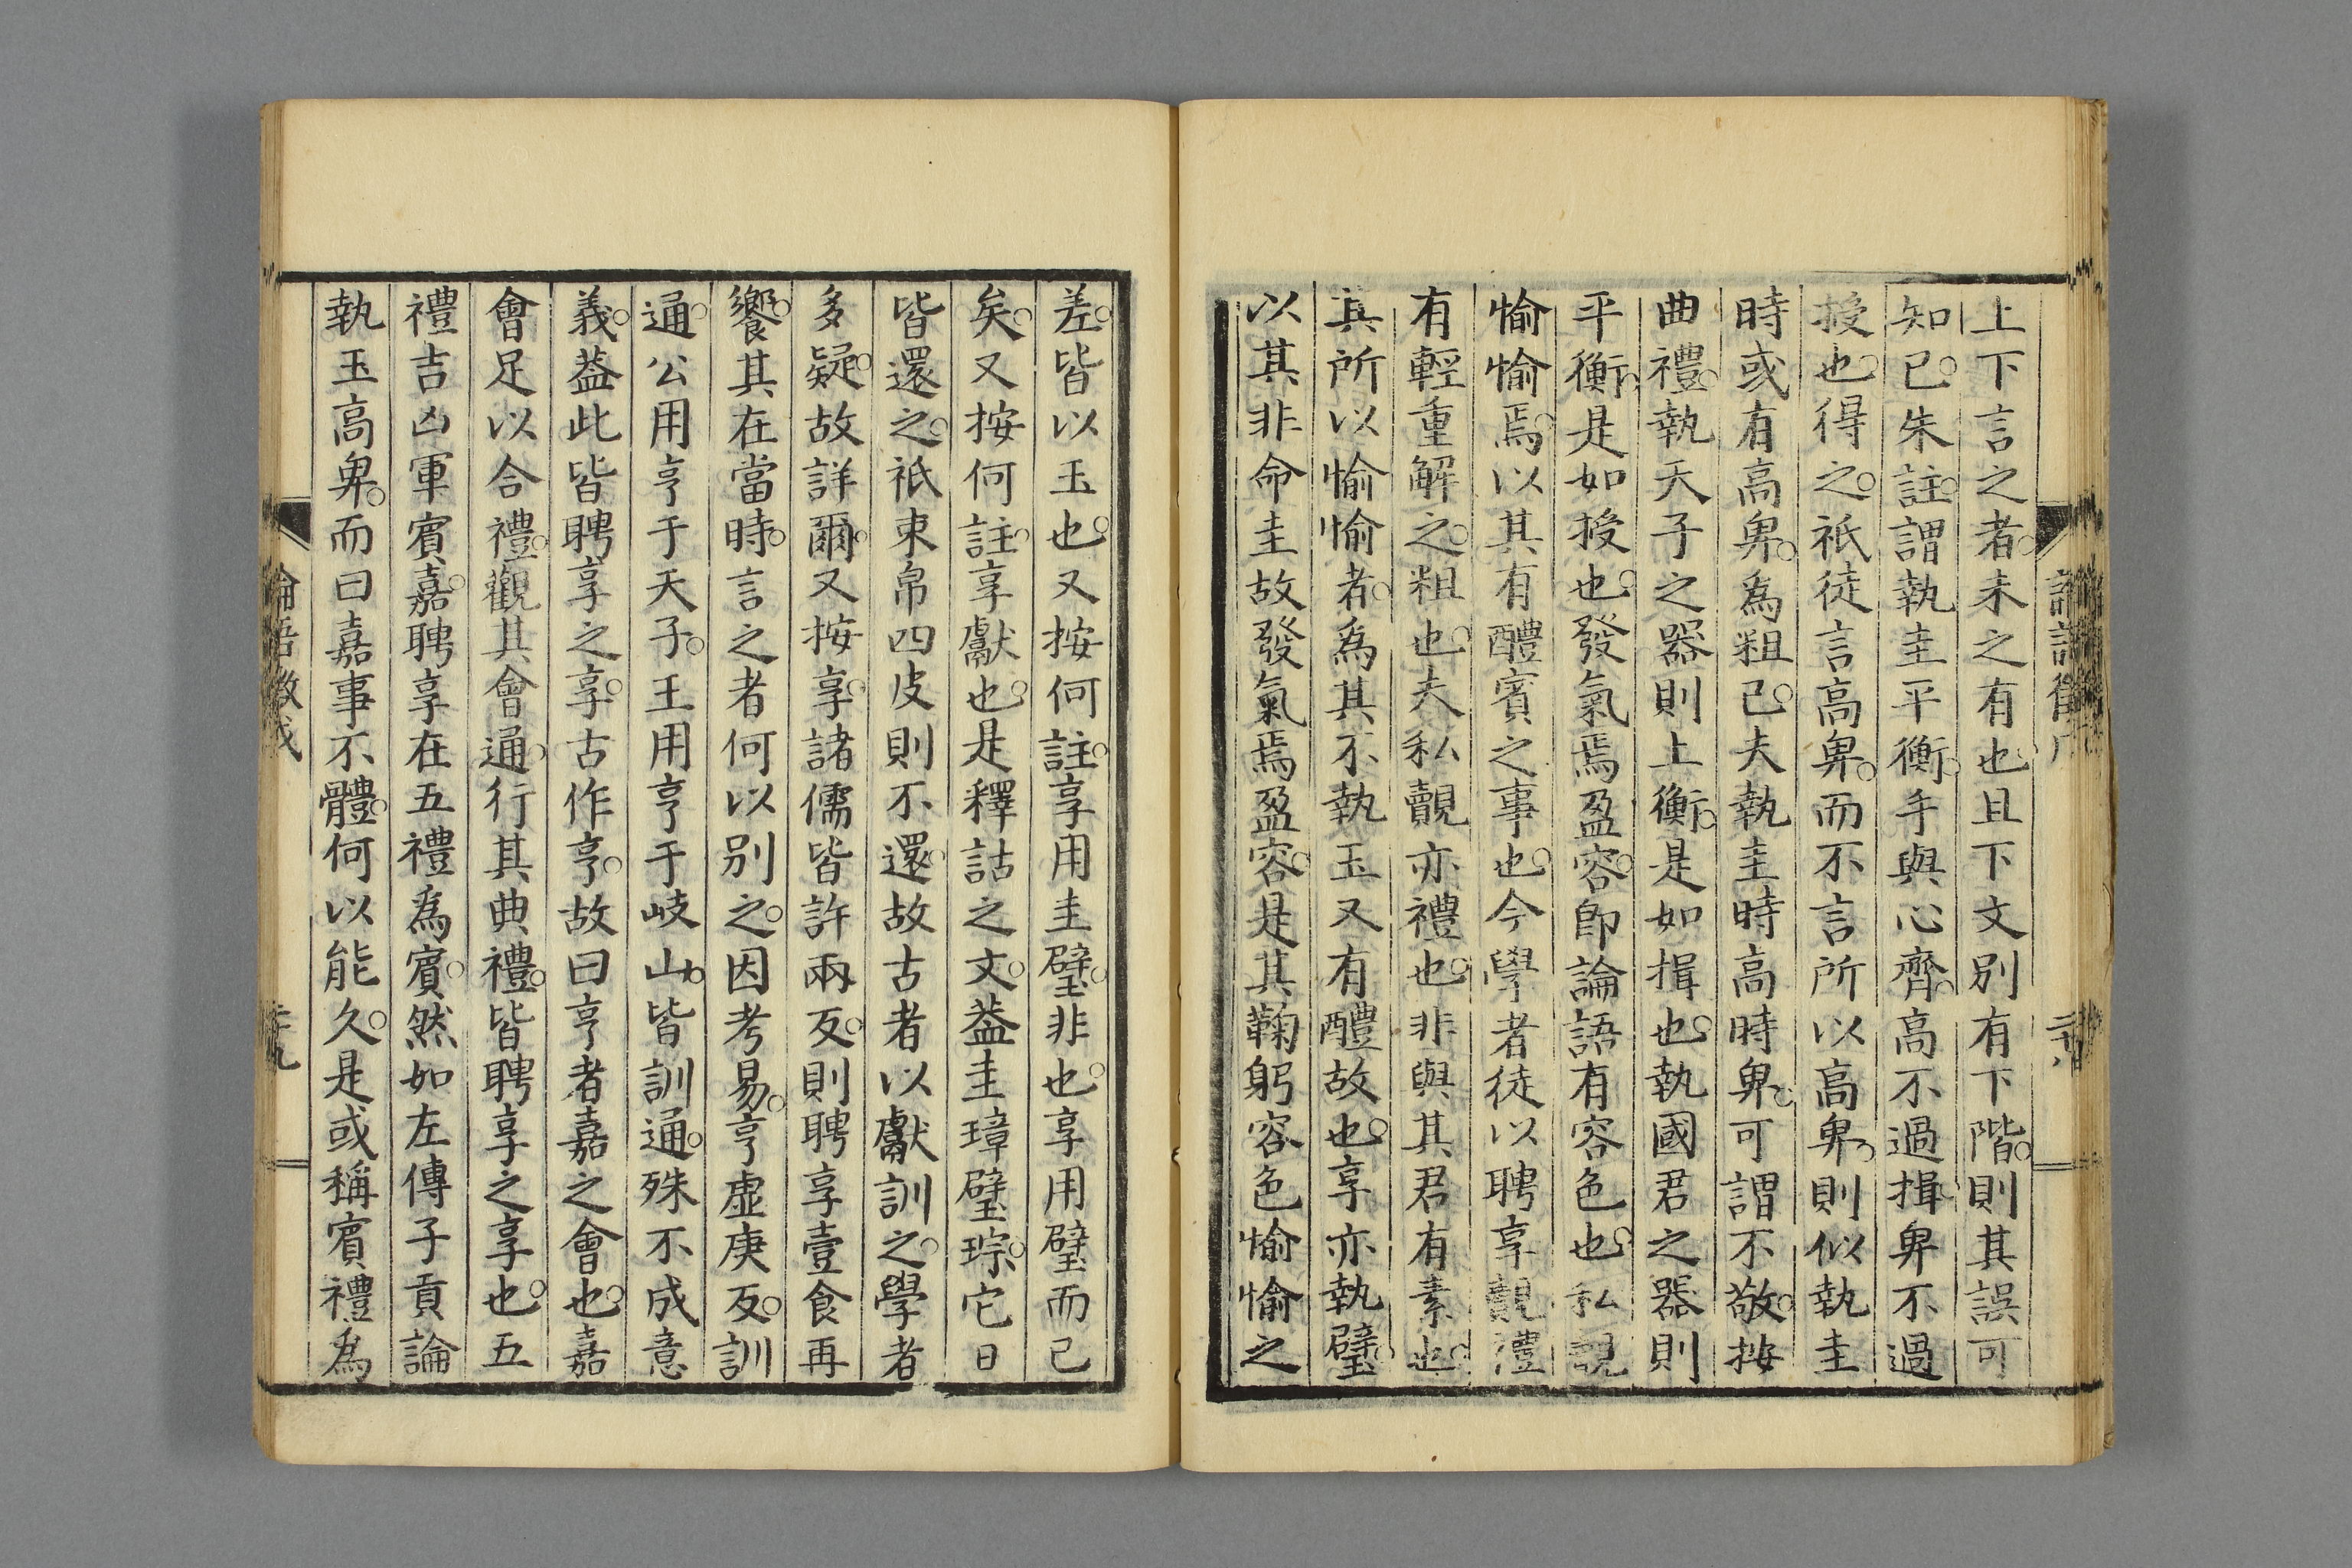 上下言之者未之有也且下文別有下階則其誤可
知已朱註謂執圭平衡手與心齊高不過揖卑不過
授也得之祇徒言高卑而不言所以高卑則似執圭
時或有高卑為粗已夫執圭時高時卑可謂不敬按
曲禮執天子之器則上衡是如揖也執國君之器則
平衡是如授也發氣焉盈容卽論語有容色也私覿
愉愉焉以其有醴賓之事也今學者徒以聘享覿禮
有輕重解之粗也夫私覿亦禮也非與其君有素也
其所以愉愉者為其不執玉又有醴故也享亦執璧
以其非命圭故發氣焉盈容是其鞠躬容色愉愉之
差皆以玉也又按何註享用圭璧非也享用璧而已
矣又按何註享獻也是釋詁之文葢圭璋璧琮它日
皆還之祇束帛四皮則不還故古者以獻訓之學者
多疑故詳爾又按享諸儒皆許兩反則聘享壹食再
饗其在當時言之者何以別之因考易亨虛庚反訓
通公用亨于天子王用亨于岐山皆訓通殊不成意
義葢此皆聘享之享古作亨故曰亨者嘉之會也嘉
會足以合禮觀其會通行其典禮皆聘享之享也五
禮吉凶軍賓嘉聘享在五禮為賓然如左傳子貢論
執玉高卑而曰嘉事不體何以能久是或稱賓禮為
論語徵戊